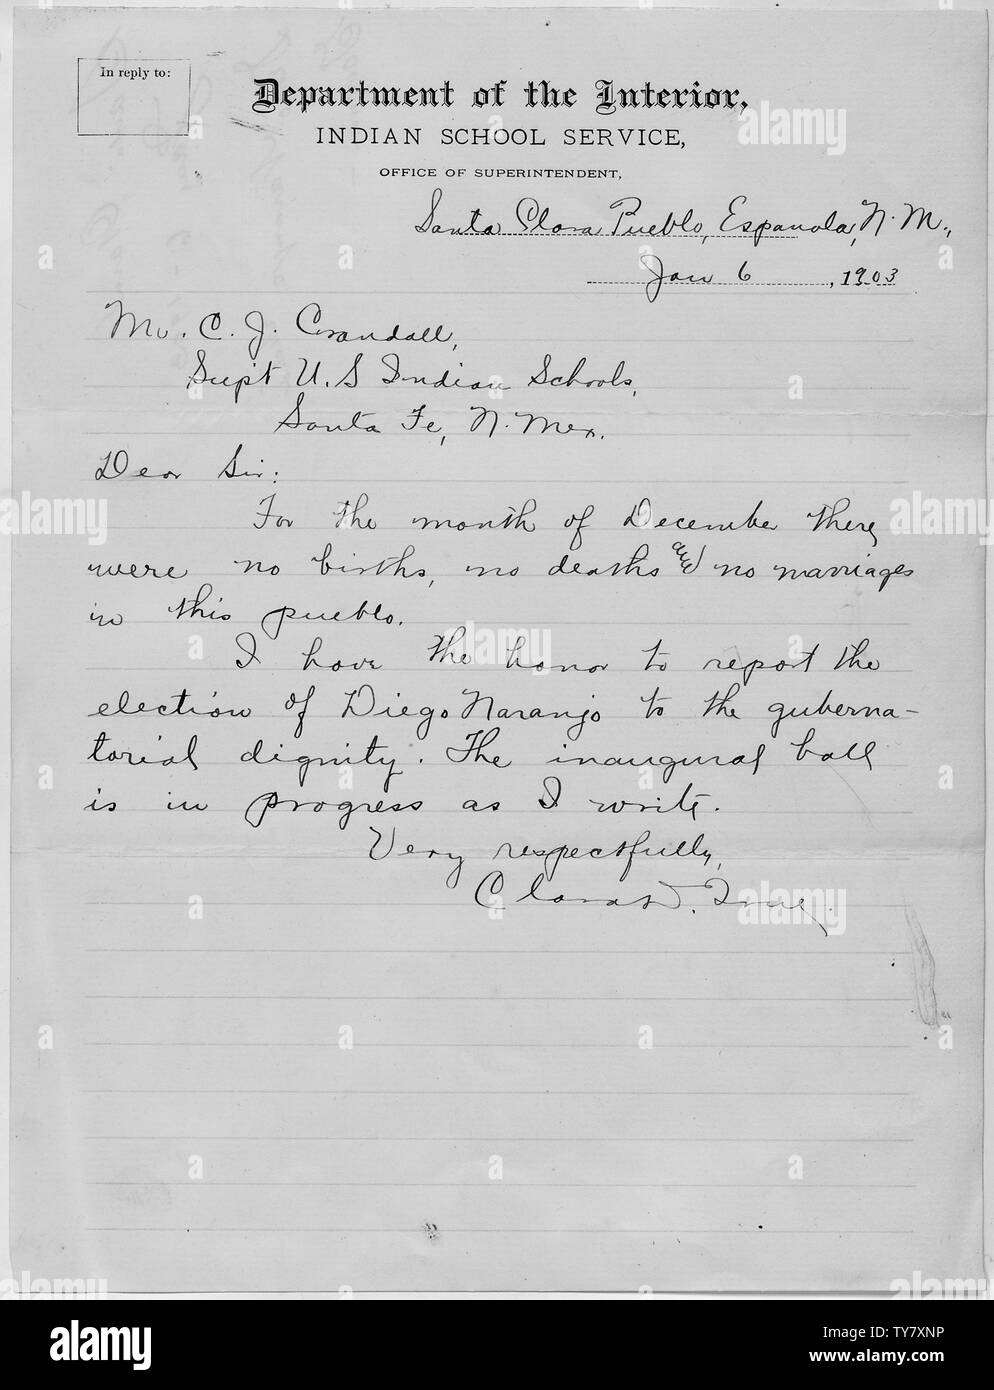 In reply to:
Department of the Interior,
INDIAN SCHOOL SERVICE,
OFFICE OF SUPERINTENDENT,
Santa Clara Pueblo, Espanola, N. M.,
Jan 6, 1903
Mr. C. J. Crandall,
Sup't U. S Indian Schools,
Santa Fe, N. Mex.
Dear Sir:
For the month of December there
were no births, no deaths and no marriages
in this pueblo.
I have the honor to report the
election of Diego Naranjo to the guberna-
torial dignity. The inaugural ball
is in progress as I write.
Very respectfully,
Clara D. True.
alamy
Image ID: TY7XNP
www.alamy.com